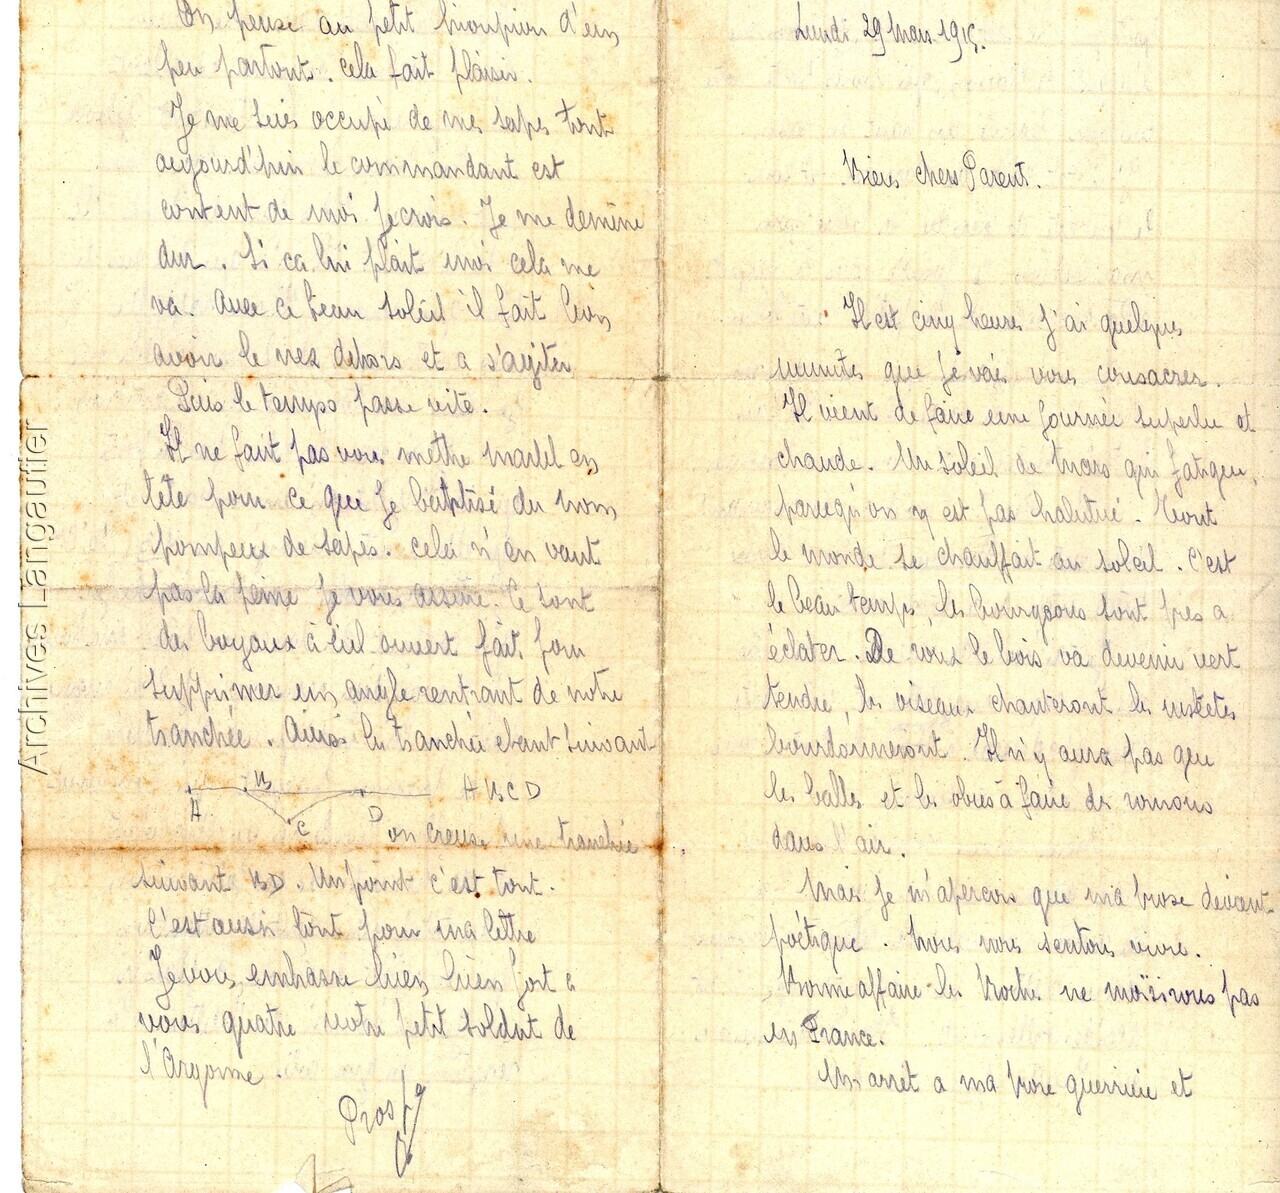 Lundi 29 Mars 1915.
Biens chers Parent.
Il est cinq heures j'ai quelques
minutes que je vais vous consacrer.
Il vient de faire une journée superbe et
chaude. Un soleil de mars qui fatigue,
parcequ'on n'y est pas habitué. Tout
le monde se chauffait au soleil. C'est
le beau temps, les bourgeons sont pres a
éclater. De roux le bois va devenir vert
tendre, les oiseaux chanteront les insectes
bourdonneront. Il n'y aura pas que
les balles et les obus à faire des
dans l'air.
Mais je m'apercois que ma prose devient
poétique. Nous nous sentons vivre.
Bonne affaire les Boches ne moisirons pas
en France.
Un arrêt a ma prose guerriere et
On pense au petit pioupiou d'un
peu partout. cela fait plaisir.
Je me suis occupé de mes sapes tout
aujourd'hui le commandant est
content de moi je crois. Je me demène
dur. Si ca lui plait moi cela me
va. Avec ce beau soleil il fait bon
avoir le nez dehors et a s'agiter
Puis le temps passe vite.
Il ne faut pas vous mettre martel en
tête pour ce que je baptisé du nom
pompeux de sapes. cela n'en vaut
pas la peine je vous assure. Ce sont
des boyaux à ciel ouvert fait pour
supprimer un angle rentrant de notre
tranchée. Ainsi la tranchée etant suivant
A B C D A B C D
on creuse une tranchée
suivant BD. Un point c'est tout.
C'est aussi tout pour ma lettre
Je vous embrasse bien bien fort a
vous quatre votre petit soldat de
l'Argonne.
Prosp
Archives Langautier